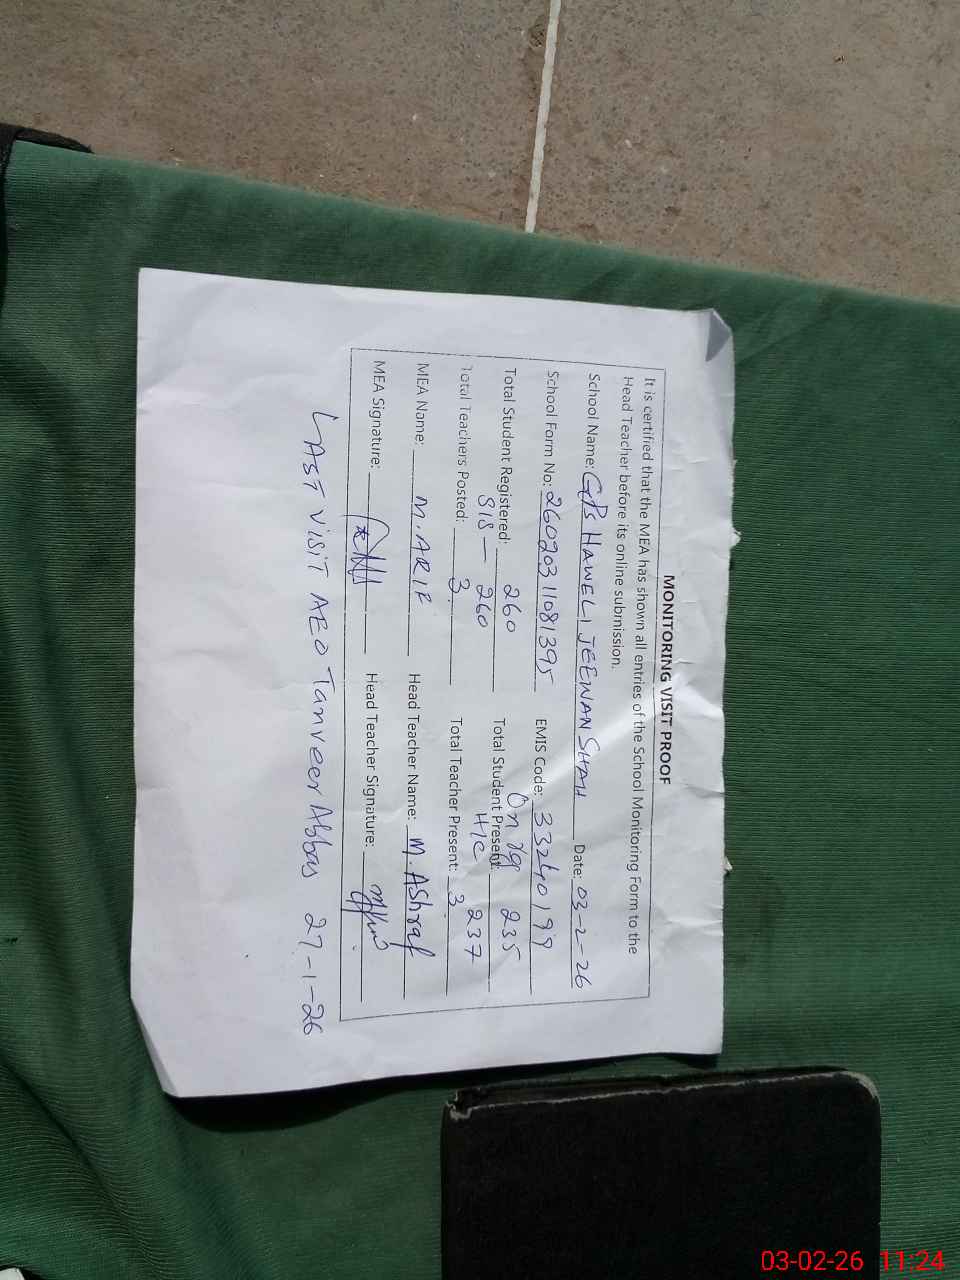 MONITORING VISIT PROOF
It is certified that the MEA has shown all entries of the School Monitoring Form to the
Head Teacher before its online submission.
School Name: GPS HAWELI JEEWAN SHAH Date: 03-2-26
School Form No: 26020311081395 EMIS Code: 33240199
Total Student Registered: 260 Total Student Present: On reg 235
SIS - 260 H/C 237
Total Teachers Posted: 3 Total Teacher Present: 3
MEA Name: M. ARIF Head Teacher Name: M. AShraf
MEA Signature: Head Teacher Signature:
LAST VISIT AEO Tanveer Abbas 27-1-26
03-02-26 11:24